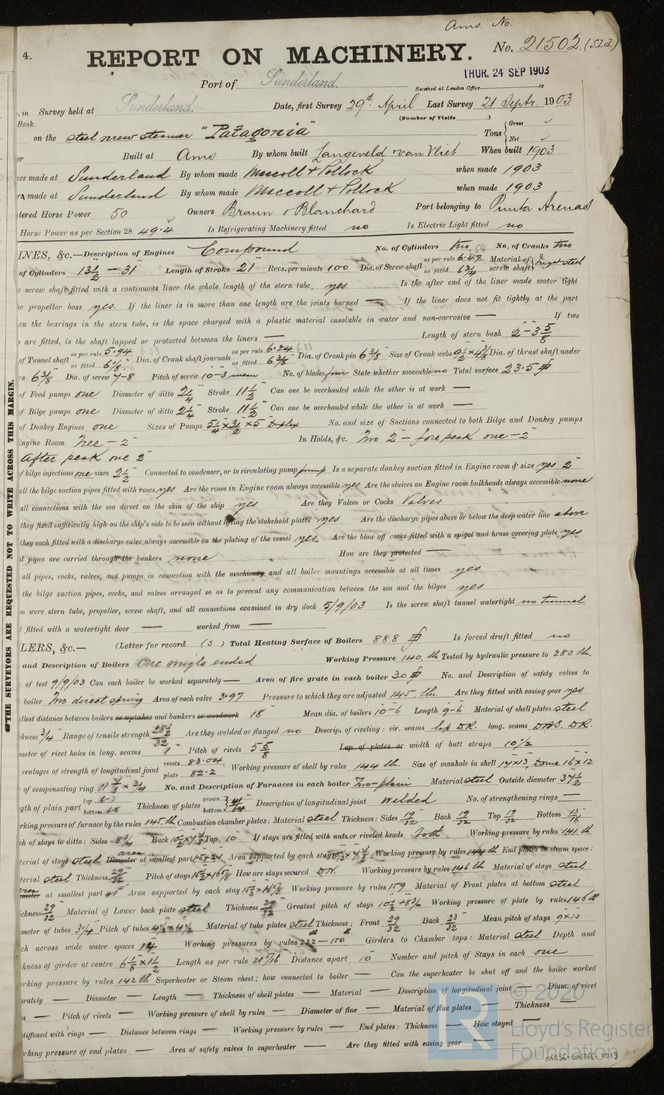 Ams. No.
4.
REPORT ON MACHINERY. No. 21502 (Sld)
THUR. 24 SEP 1903
Port of Sunderland. Received at London Office 19
in Survey held at Sunderland. Date, first Survey 29th April Last Survey 21 Septr. 1903
Book. (Number of Visits )
on the steel screw steamer "Patagonia" Tons { Gross Net
Built at Ams By whom built Langeveld & van Vliet When built 1903
made at Sunderland By whom made Maccoll & Pollock when made 1903
made at Sunderland By whom made Maccoll & Pollock when made 1903
Horse Power 50 Owners Braun & Blanchard Port belonging to Punta Arenas
Horse Power as per Section 28 49.4 Is Refrigerating Machinery fitted no Is Electric Light fitted no
INES, &c.—Description of Engines Compound No. of Cylinders two No. of Cranks two
of Cylinders 13½ – 31" Length of Stroke 21" Revs. per minute 100 Dia. of Screw shaft as per rule 6.49 as fitted 6¾ Material of screw shaft Ingot steel
screw shaft fitted with a continuous liner the whole length of the stern tube yes Is the after end of the liner made water tight
propeller boss yes. If the liner is in more than one length are the joints burned — If the liner does not fit tightly at the part
the bearings in the stern tube, is the space charged with a plastic material insoluble in water and non-corrosive — If two
are fitted, is the shaft lapped or protected between the liners — Length of stern bush 2-3⅝
of Tunnel shaft as per rule 5.94 as fitted 6⅛ Dia. of Crank shaft journals as per rule 6.24 as fitted 6⅜ Dia. of Crank pin 6⅜ Size of Crank webs Dia. of thrust shaft under
6⅜ Dia. of screw 7-8 Pitch of screw 10-3 mean No. of blades four State whether moveable no Total surface 23.5
of Feed pumps one Diameter of ditto 2¼ Stroke 11½ Can one be overhauled while the other is at work —
of Bilge pumps one Diameter of ditto 2¼ Stroke 11½ Can one be overhauled while the other is at work —
of Donkey Engines one Sizes of Pumps 5¼ x 3½ x 5 Duplex No. and size of Suctions connected to both Bilge and Donkey pumps
Engine Room Three – 2" In Holds, &c. Two 2" – fore peak one – 2"
after peak one 2"
of bilge injections one sizes 2½ Connected to condenser, or to circulating pump pump Is a separate donkey suction fitted in Engine room & size yes 2"
all the bilge suction pipes fitted with roses yes Are the roses in Engine room always accessible yes Are the sluices on Engine room bulkheads always accessible none
all connections with the sea direct on the skin of the ship yes Are they Valves or Cocks Valves
they fixed sufficiently high on the ship's side to be seen without lifting the stokehold plates yes Are the discharge pipes above or below the deep water line above
they each fitted with a discharge valve always accessible on the plating of the vessel yes. Are the blow off cocks fitted with a spigot and brass covering plate yes
pipes are carried through the bunkers none How are they protected —
all pipes, cocks, valves, and pumps in connection with the machinery and all boiler mountings accessible at all times yes
the bilge suction pipes, cocks, and valves arranged so as to prevent any communication between the sea and the bilges yes
were stern tube, propeller, screw shaft, and all connections examined in dry dock 5/9/03 Is the screw shaft tunnel watertight no tunnel
fitted with a watertight door — worked from —
LERS, &c.— (Letter for record (S) ) Total Heating Surface of Boilers 888 Is forced draft fitted no
and Description of Boilers One single ended Working Pressure 140 lb Tested by hydraulic pressure to 280 lb.
of test 9/9/03 Can each boiler be worked separately — Area of fire grate in each boiler 30 No. and Description of safety valves to
boiler Two direct spring Area of each valve 3.97 Pressure to which they are adjusted 145 lb Are they fitted with easing gear yes
distance between boilers or uptakes and bunkers or woodwork 18" Mean dia. of boilers 10-6 Length 9-6 Material of shell plates steel
¾ Range of tensile strength Are they welded or flanged no Descrip. of riveting: cir. seams lap DR. long. seams DBS. DR.
meter of rivet holes in long. seams Pitch of rivets 5⅝ Lap of plates or width of butt straps 10½
centages of strength of longitudinal joint rivets 83.04 plate 82.2 Working pressure of shell by rules 144 lb Size of manhole in shell 17x13, Dome 16x12
of compensating ring No. and Description of Furnaces in each boiler Two plain Material steel Outside diameter 37½
of plain part top 6-7 bottom 6-8 Thickness of plates crown bottom Description of longitudinal joint Welded No. of strengthening rings —
working pressure of furnace by the rules 145 lb Combustion chamber plates: Material steel Thickness: Sides 19/32 Back 19/32 Top 19/32 Bottom
of stays to ditto: Sides Back Top 10 If stays are fitted with nuts or riveted heads Both Working pressure by rules 141 lb
of stays steel Diameter at smallest part Area supported by each stay Working pressure by rules End plates in steam space:
steel Thickness 29/32 Pitch of stays How are stays secured DN Working pressure by rules 146 lb Material of stays steel
at smallest part Area supported by each stay Working pressure by rules 159 Material of Front plates at bottom steel
29/32 Material of Lower back plate steel Thickness 29/32 Greatest pitch of stays Working pressure of plate by rules 146 lb
meter of tubes 3¼ Pitch of tubes Material of tube plates steel Thickness: Front 29/32 Back 23/32 Mean pitch of stays 9x13
across wide water spaces 14 Working pressures by rules Girders to Chamber tops: Material steel Depth and
kness of girder at centre 6⅛ x 1½ Length as per rule Distance apart 10 Number and pitch of Stays in each one
pressure by rules 142 lb Superheater or Steam chest; how connected to boiler — Can the superheater be shut off and the boiler worked
rately — Diameter — Length — Thickness of shell plates — Material — Description of longitudinal joint Diam. of rivet
— Pitch of rivets — Working pressure of shell by rules — Diameter of flue — Material of flue plates — Thickness —
stiffened with rings — Distance between rings — Working pressure by rules — End plates: Thickness — How stayed
rking pressure of end plates — Area of safety valves to superheater — Are they fitted with easing gear
THE SURVEYORS ARE REQUESTED NOT TO WRITE ACROSS THIS MARGIN.
© 2020
Lloyd's Register
Foundation